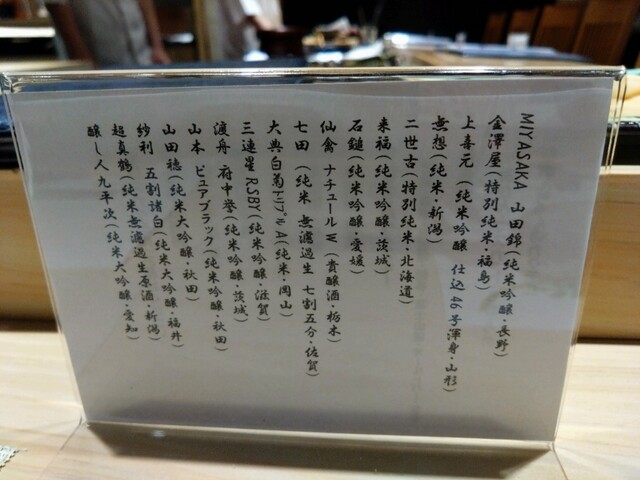 MIYASAKA 山田錦(純米吟醸・長野)
金澤屋(特別純米・福島)
上喜元 (純米吟醸 仕込46号渾身・山形)
無想(純米・新潟)
二世古(特別純米・北海道)
来福(純米吟醸・茨城)
石鎚(純米吟醸・愛媛)
仙禽 ナチュールW (貴醸酒・栃木)
七田 (純米 無濾過生 七割五分・佐賀)
大典白菊トリプルA(純米・岡山)
三連星R.S.BY(純米吟醸・滋賀)
渡舟 府中誉(純米吟醸・茨城)
山本 ピュアブラック(純米吟醸・秋田)
山田穂(純米大吟醸・秋田)
紗利 五割諸白(純米大吟醸・福井)
超真鶴(純米無濾過生原酒・新潟)
醸し人九平次(純米大吟醸・愛知)